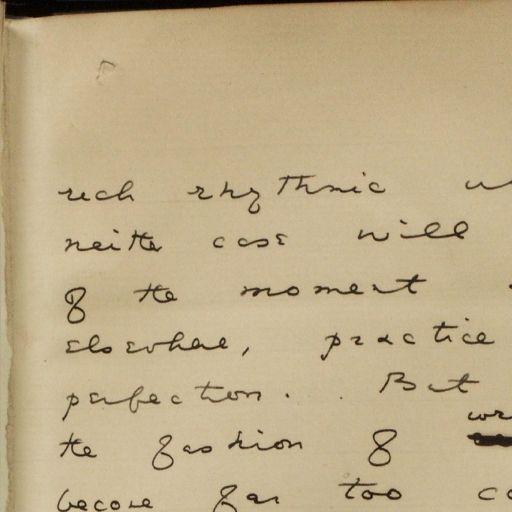 rich rhythmic
neither case will
of the moment
elsewhere, practice
perfection. But
the fashion of
become far too